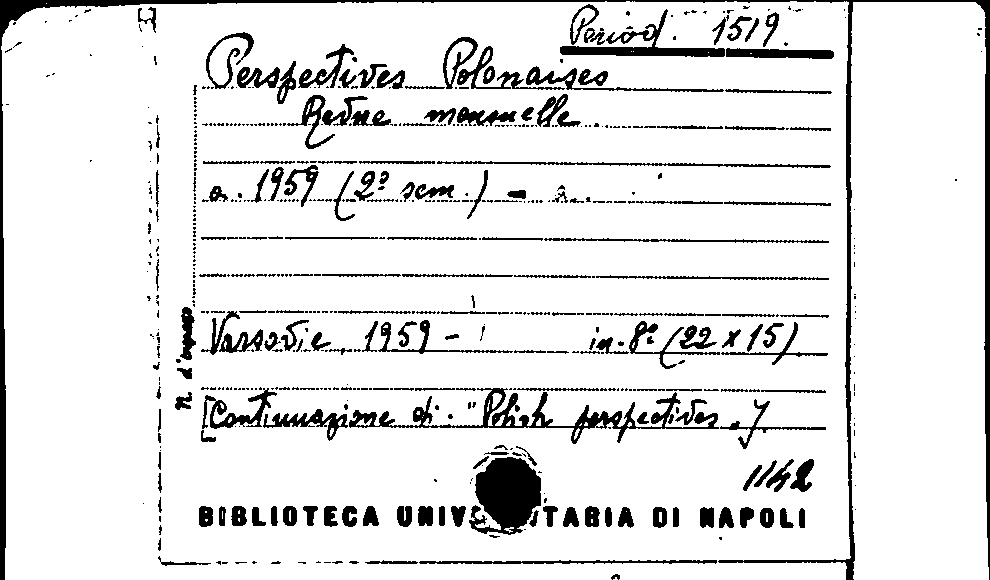 Period. 1519.
Perspectives Polonaises
Revue mensuelle.
a. 1959 (2º sem.) - a..
Varsovie, 1959 - in-8º (22 x 15)
[Continuazione di: "Polish perspectives"].
1142
N. d'ingresso
BIBLIOTECA UNIVERSITARIA DI NAPOLI